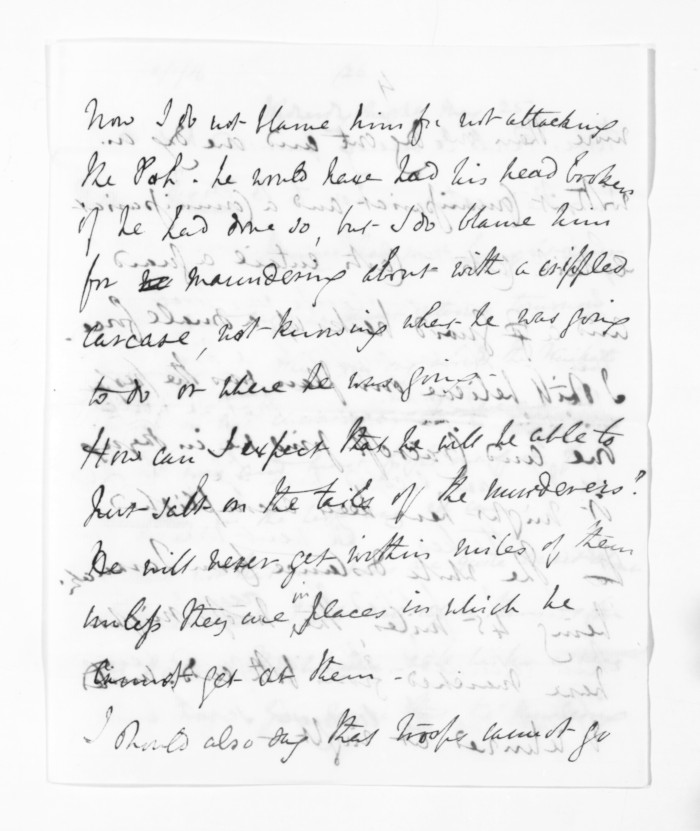 Now I do not blame him for not attacking
the Pah. he would have had his head broken
if he had done so, but I do blame him
for maundering about with a crippled
carcase, not knowing what he was going
to do or where he was going.
How can I expect that he will be able to
put salt on the tails of the murderers?
He will never get within miles of them
unless they are in places in which he
cannot get at them -
I should also say that troops cannot go